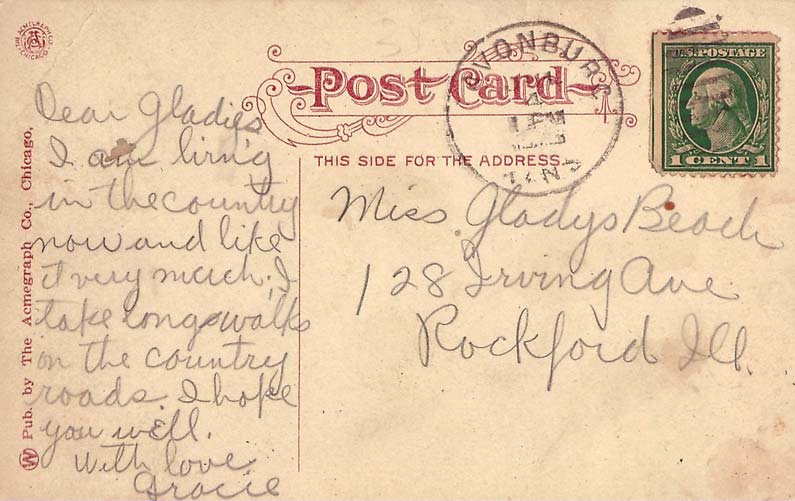 THE ACMEGRAPH CO.
CHICAGO
Post Card
THIS SIDE FOR THE ADDRESS
U.S. POSTAGE
1 CENT 1
Dear Gladies
I am living
in the country
now and like
it very much. I
take long walks
on the country
roads. I hope
you well.
With love
Gracie
Miss Gladys Beach
128 Irving Ave
Rockford Ill.
W Pub. by The Acmegraph Co., Chicago,